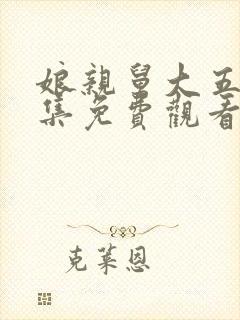 娘親舅大五
集免費觀看
克萊恩